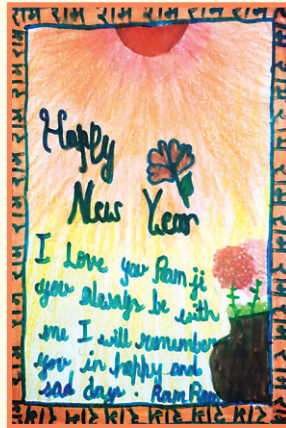 राम राम राम राम राम राम
Happy
New Year
I Love you Ram ji
you always be with
me I will remember
you in happy and
sad days. Ram Ram
राम राम राम राम राम राम